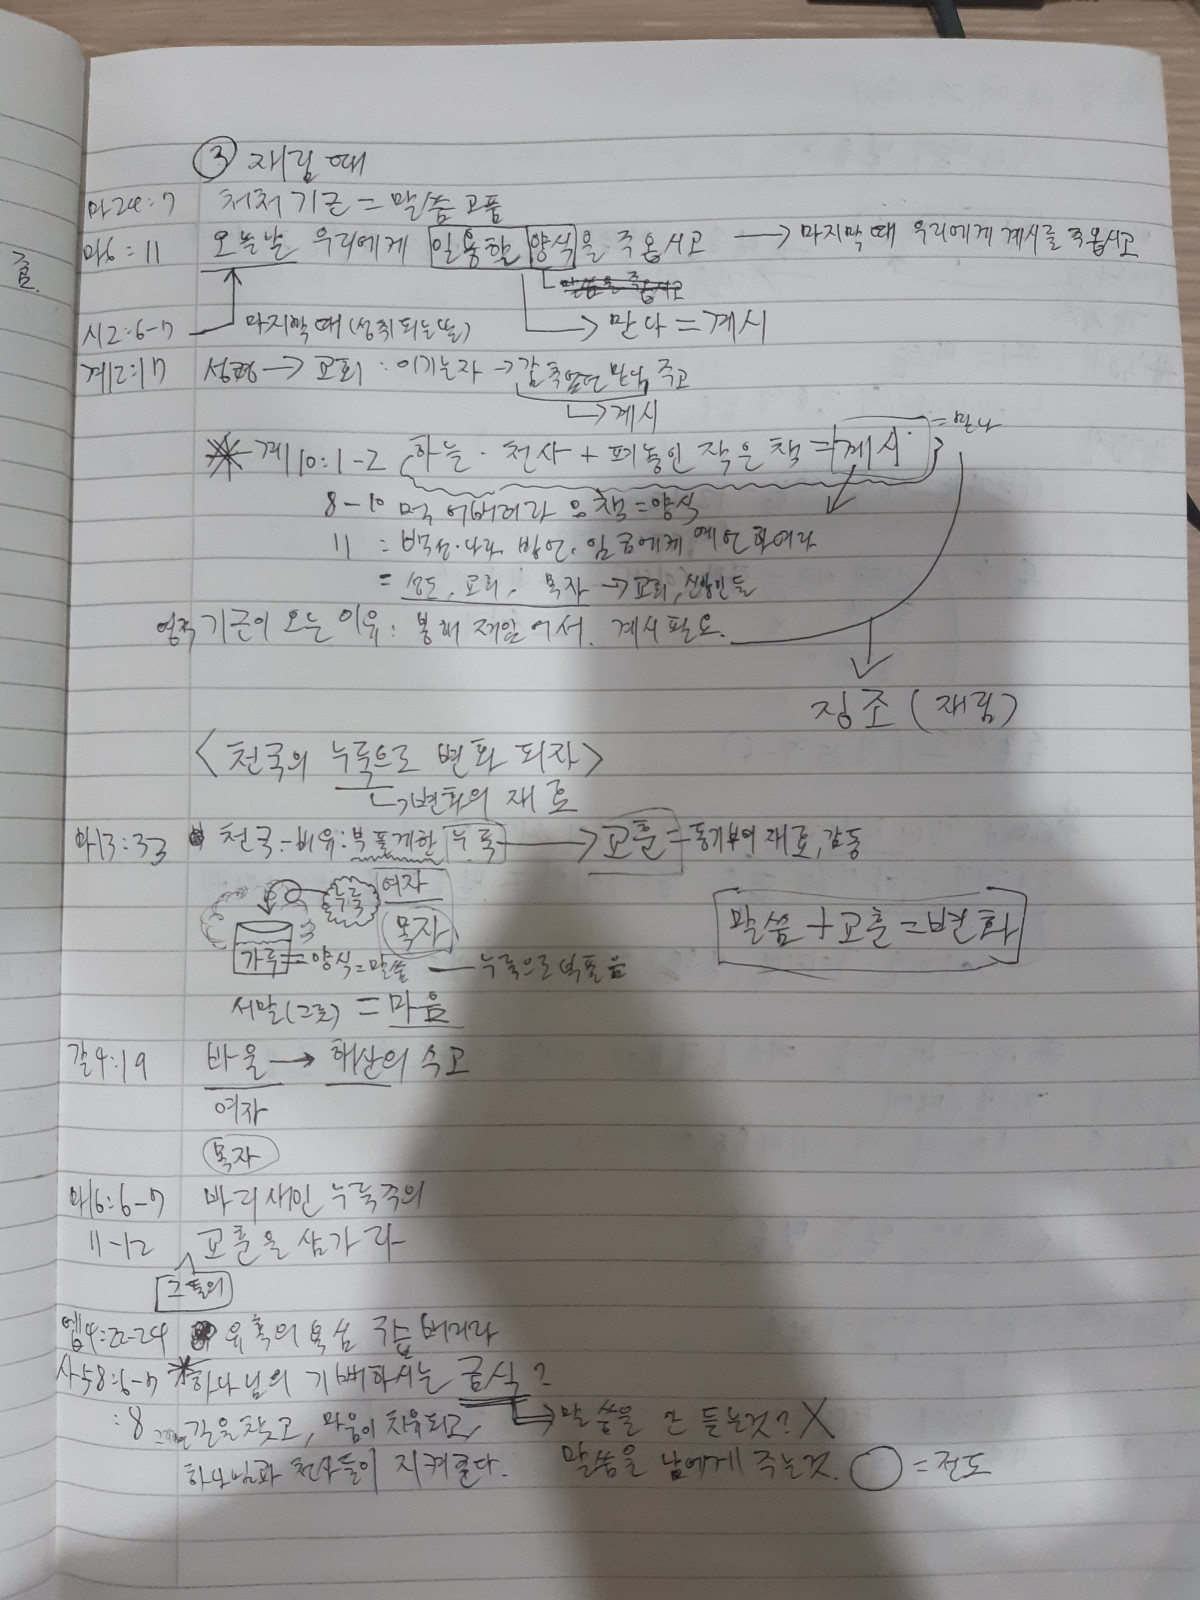 ③ 재림 때
마24:7 처처기근 = 말씀 고픔
마6:11 오늘날 우리에게 일용할 양식을 주옵시고 → 마지막 때 우리에게 계시를 주옵시고
말씀을 주옵시고
시2:6-7 마지막 때 (성취되는 때) → 만나 = 계시
계2:17 성령 → 교회 : 이기는자 → 감추었던 만나 주고
↳ 계시
계10:1-2 하늘·천사 + 펴놓인 작은 책 = 계시 = 만나
8-10 먹어버려라 책=양식
11 = 백성·나라·방언·임금에게 예언하여라
= 성도, 교회, 목자 → 교회, 신앙인들
영적 기근이 오는 이유: 봉해져있어서. 계시 필요.
징조 (재림)
<천국의 누룩으로 변화 되자>
↳ 변화의 재료
마13:33 천국-비유: 부풀게한 누룩 → 교훈 = 동기부여 재료, 감동
누룩 여자
목자
말씀+교훈=변화
가루=양식=말씀 — 누룩으로 부풀음
서말(그릇) = 마음
갈4:19 바울 → 해산의 수고
여자
목자
마16:6-7 바리새인 누룩주의
11-12 교훈을 삼가라
그들의
엡4:22-24 유혹의 욕심 구습 버리라
사58:6-7 *하나님의 기뻐하시는 금식?
:8 그리하면 길을 찾고, 마음이 치유되고, → 말씀을 안 듣는것? X
하나님과 천사들이 지켜준다. 말씀을 남에게 주는것. ○ = 전도